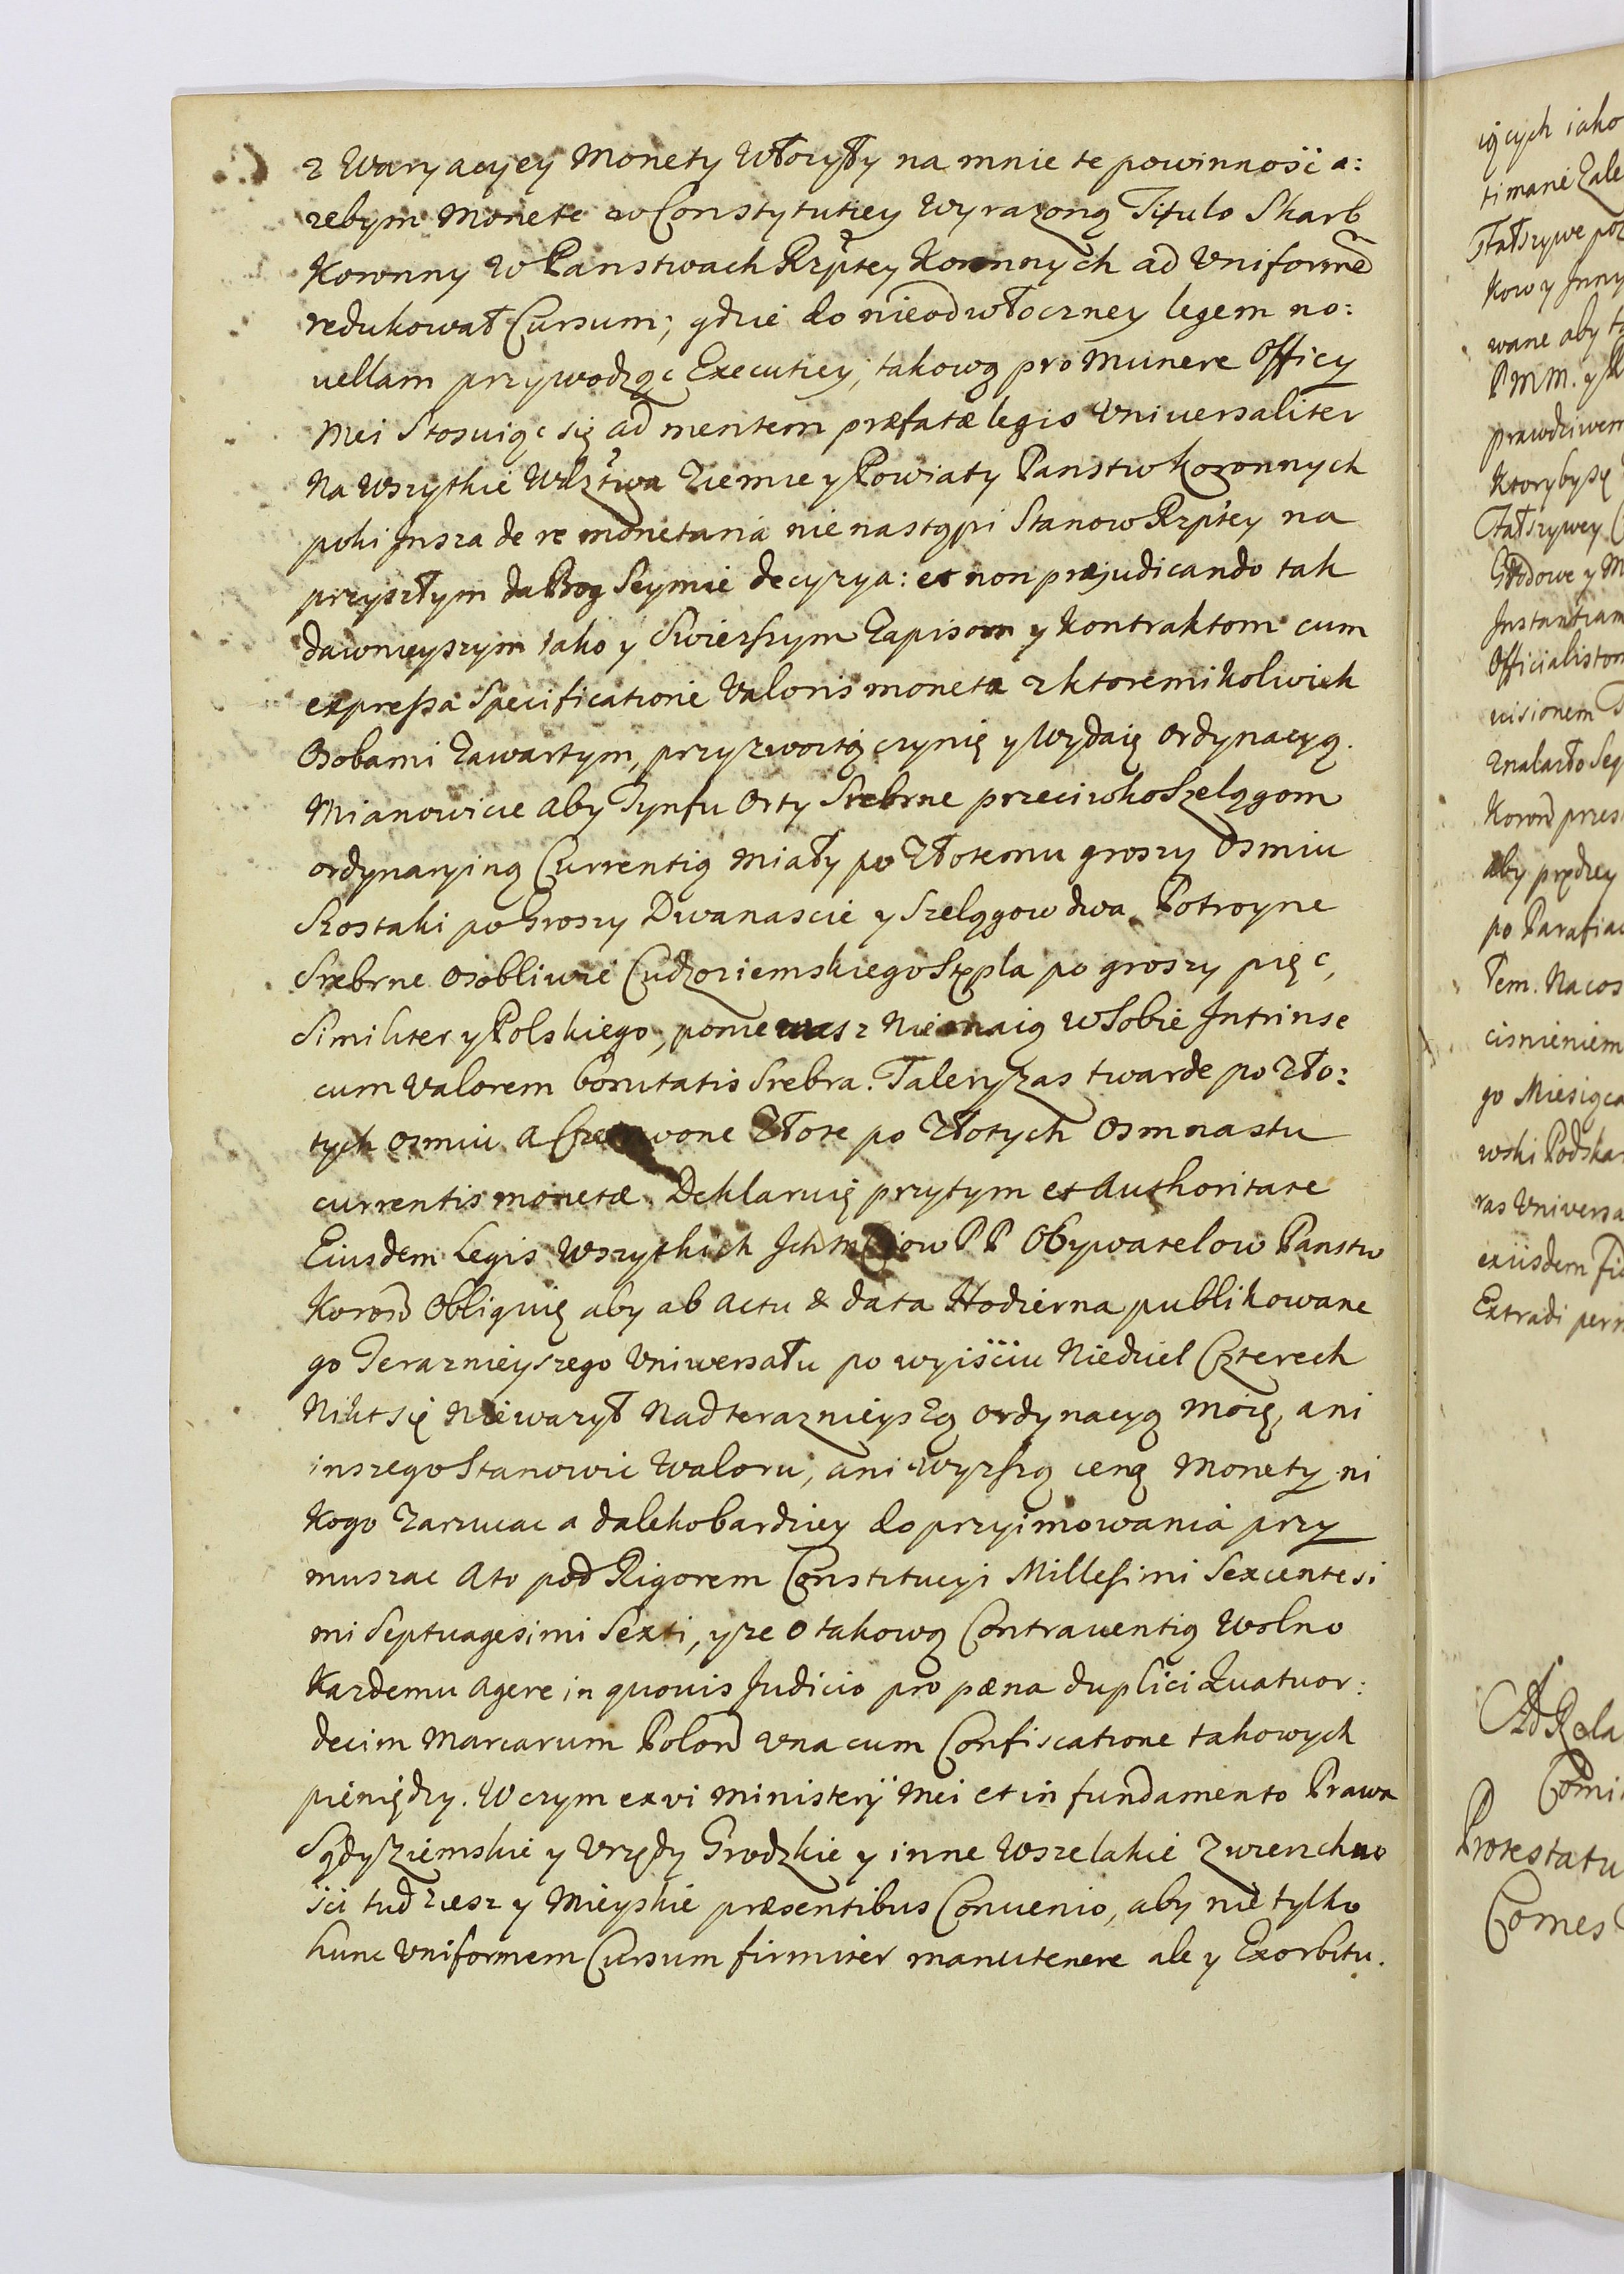 z Waryacyey Monety Włozyły na mnie te powinność a:
zebym Monete w Constytutiey Wyrazoną Titulo Skarb
Koronny W Panstwach Rzptey Koronnych ad Uniforme
redukował Cursum; gdzie do nieodwłoczney legem no:
uellam przywodząc Executiey, takową pro Munere Officy
Mei Stosuiąc się ad mentem præfatæ legis Universaliter
Na Wszytkie Wdztwa Ziemie y Powiaty Panstw koronnych
poki Insza de re monetaria nie nastąpi Stanow Rzptey na
przyszłym da Bog Seymie decyzya: et non præjudicando tak
dawnieyszym iako y Swieższym Zapisom y Kontraktom cum
expressa Specificatione Valoris moneta z ktoremikolwiek
Osobami Zawartym, przyzwoitą czynię y Wydaię Ordynacyą.
Mianowicie aby Tynfu Orty Srebrne przeciwko Szelągom
ordynaryiną Currentią Miały po Złotemu groszy Osmiu
Szostaki po Groszy Dwanascie y Szelągow dwa, Potroyne
Srebrne osobliwie Cudzoziemskiego Stępla po groszy pięc,
Similiter y Polskiego, poniewasz Niemaią w Sobie Intrinse
cum Valorem bonitatis Srebra. Talery zas twarde po Zło:
tych osmiu A Czerwone Złote po Złotych Osmnastu
currentis monetæ. Deklaruię przytym et Authoritate
Eiusdem Legis Wszytkich Ichmciow PP Obywatelow Panstw
Koron Obliguię aby ab actu & data Hodierna publikowane
go Teraznieyszego Uniwersału po wyiściu Niedziel Czterech
Nikt się Nie wazył Nad terazniejszą ordynacyą moię, ani
inszego Stanowic Waloru, ani wyzszą ceną Monety ni
Kogo Zarzucac a dalekobardziey do przyimowania przy
muszac A to pod Rigorem Constitucyi Millesimi Sexcentesi
mi Septuagesimi Sexti, y ze o takową Contrauentią Wolno
Kazdemu Agere in quouis Judicio pro pæna duplici Quatuor:
decim Marcarum Polon Una cum Confiscatione takowych
pieniędzy. W czym ex vi Ministerij Mei et in fundamento Prawa
Sądy Ziemskie y Urzędy Grodzkie y inne Wszelakie Zwierzchno
ści tudziesz y Mieyskie præsentibus Convenio, aby nie tylko
hunc Uniformem Cursum firmiter manutenere ale y Exorbitu.
iących iako
timanè Zale
Fałszywe
Kow y Inny
wane aby
PMM. y
prawdziwem
Ktoryby się
Fałszywey
Grodowe y M
Instantiam
Officialistom
uisionem
Znalazło Seq
Koron przes
Aby prędzey
po Parafiac
Tem. Na cos
cisnieniem
go Miesiąca
wski Podska
ras Universa
exiisdem
Extradi perm
Ad Rela
Comi
Protestatu
Comes